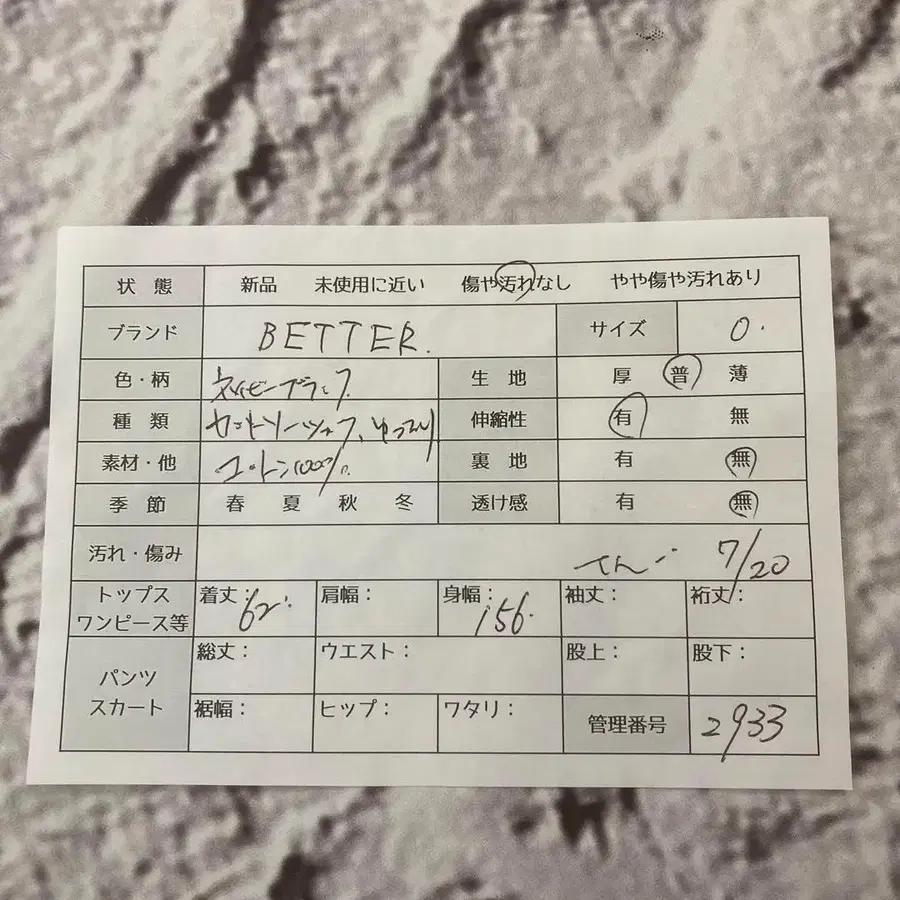 状 態 新品 未使用に近い 傷や汚れなし やや傷や汚れあり
ブランド BETTER. サイズ 0.
色・柄 ネイビーブラック 生 地 厚 普 薄
種 類 カットソーソックス、ゆったり 伸縮性 有 無
素材・他 コットン100% 裏 地 有 無
季 節 春 夏 秋 冬 透け感 有 無
汚れ・傷み 7/20
トップス 着丈: 62. 肩幅: 身幅: 156. 袖丈: 裄丈:
ワンピース等
パンツ 総丈: ウエスト: 股上: 股下:
スカート 裾幅: ヒップ: ワタリ: 管理番号 2933